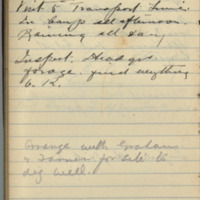 Visit 5 Transport Lines.
In Camp all afternoon.
Raining all day,
Inspect. Head qrs
forage. find everything
O.K.
Arrange with Graham
& Farmer for site to
dig well.